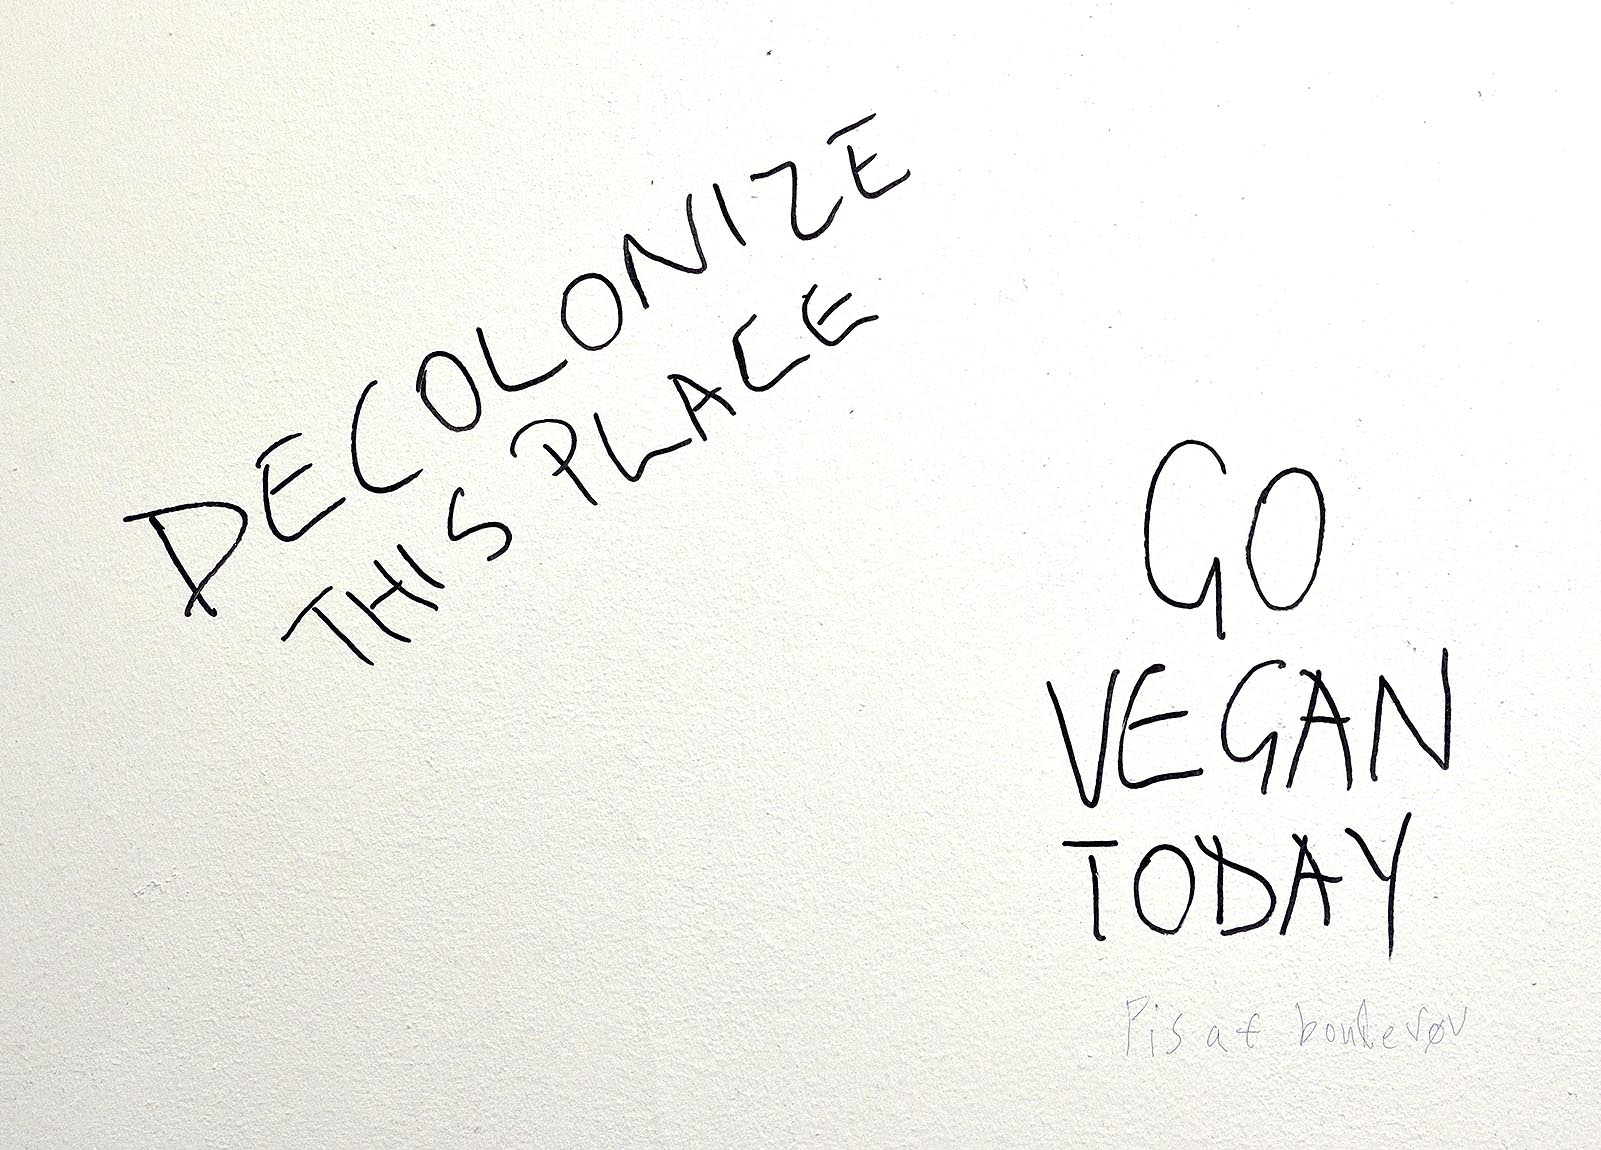 DECOLONIZE
THIS PLACE
GO
VEGAN
TODAY
Pis af